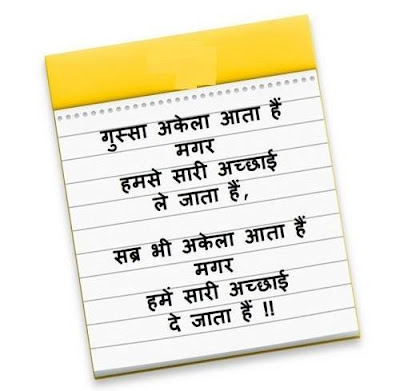 गुस्सा अकेला आता हैं
मगर
हमसे सारी अच्छाई
ले जाता हैं,
सब्र भी अकेला आता हैं
मगर
हमें सारी अच्छाई
दे जाता हैं !!